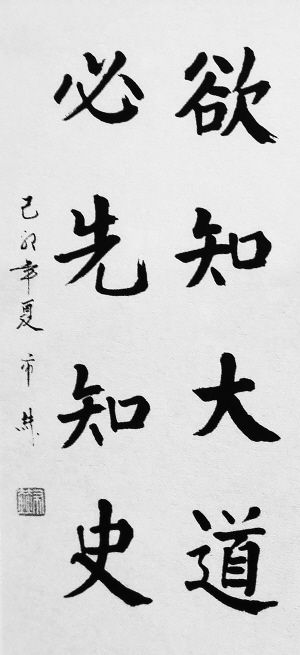 欲知大道
必先知史
己卯年夏 市